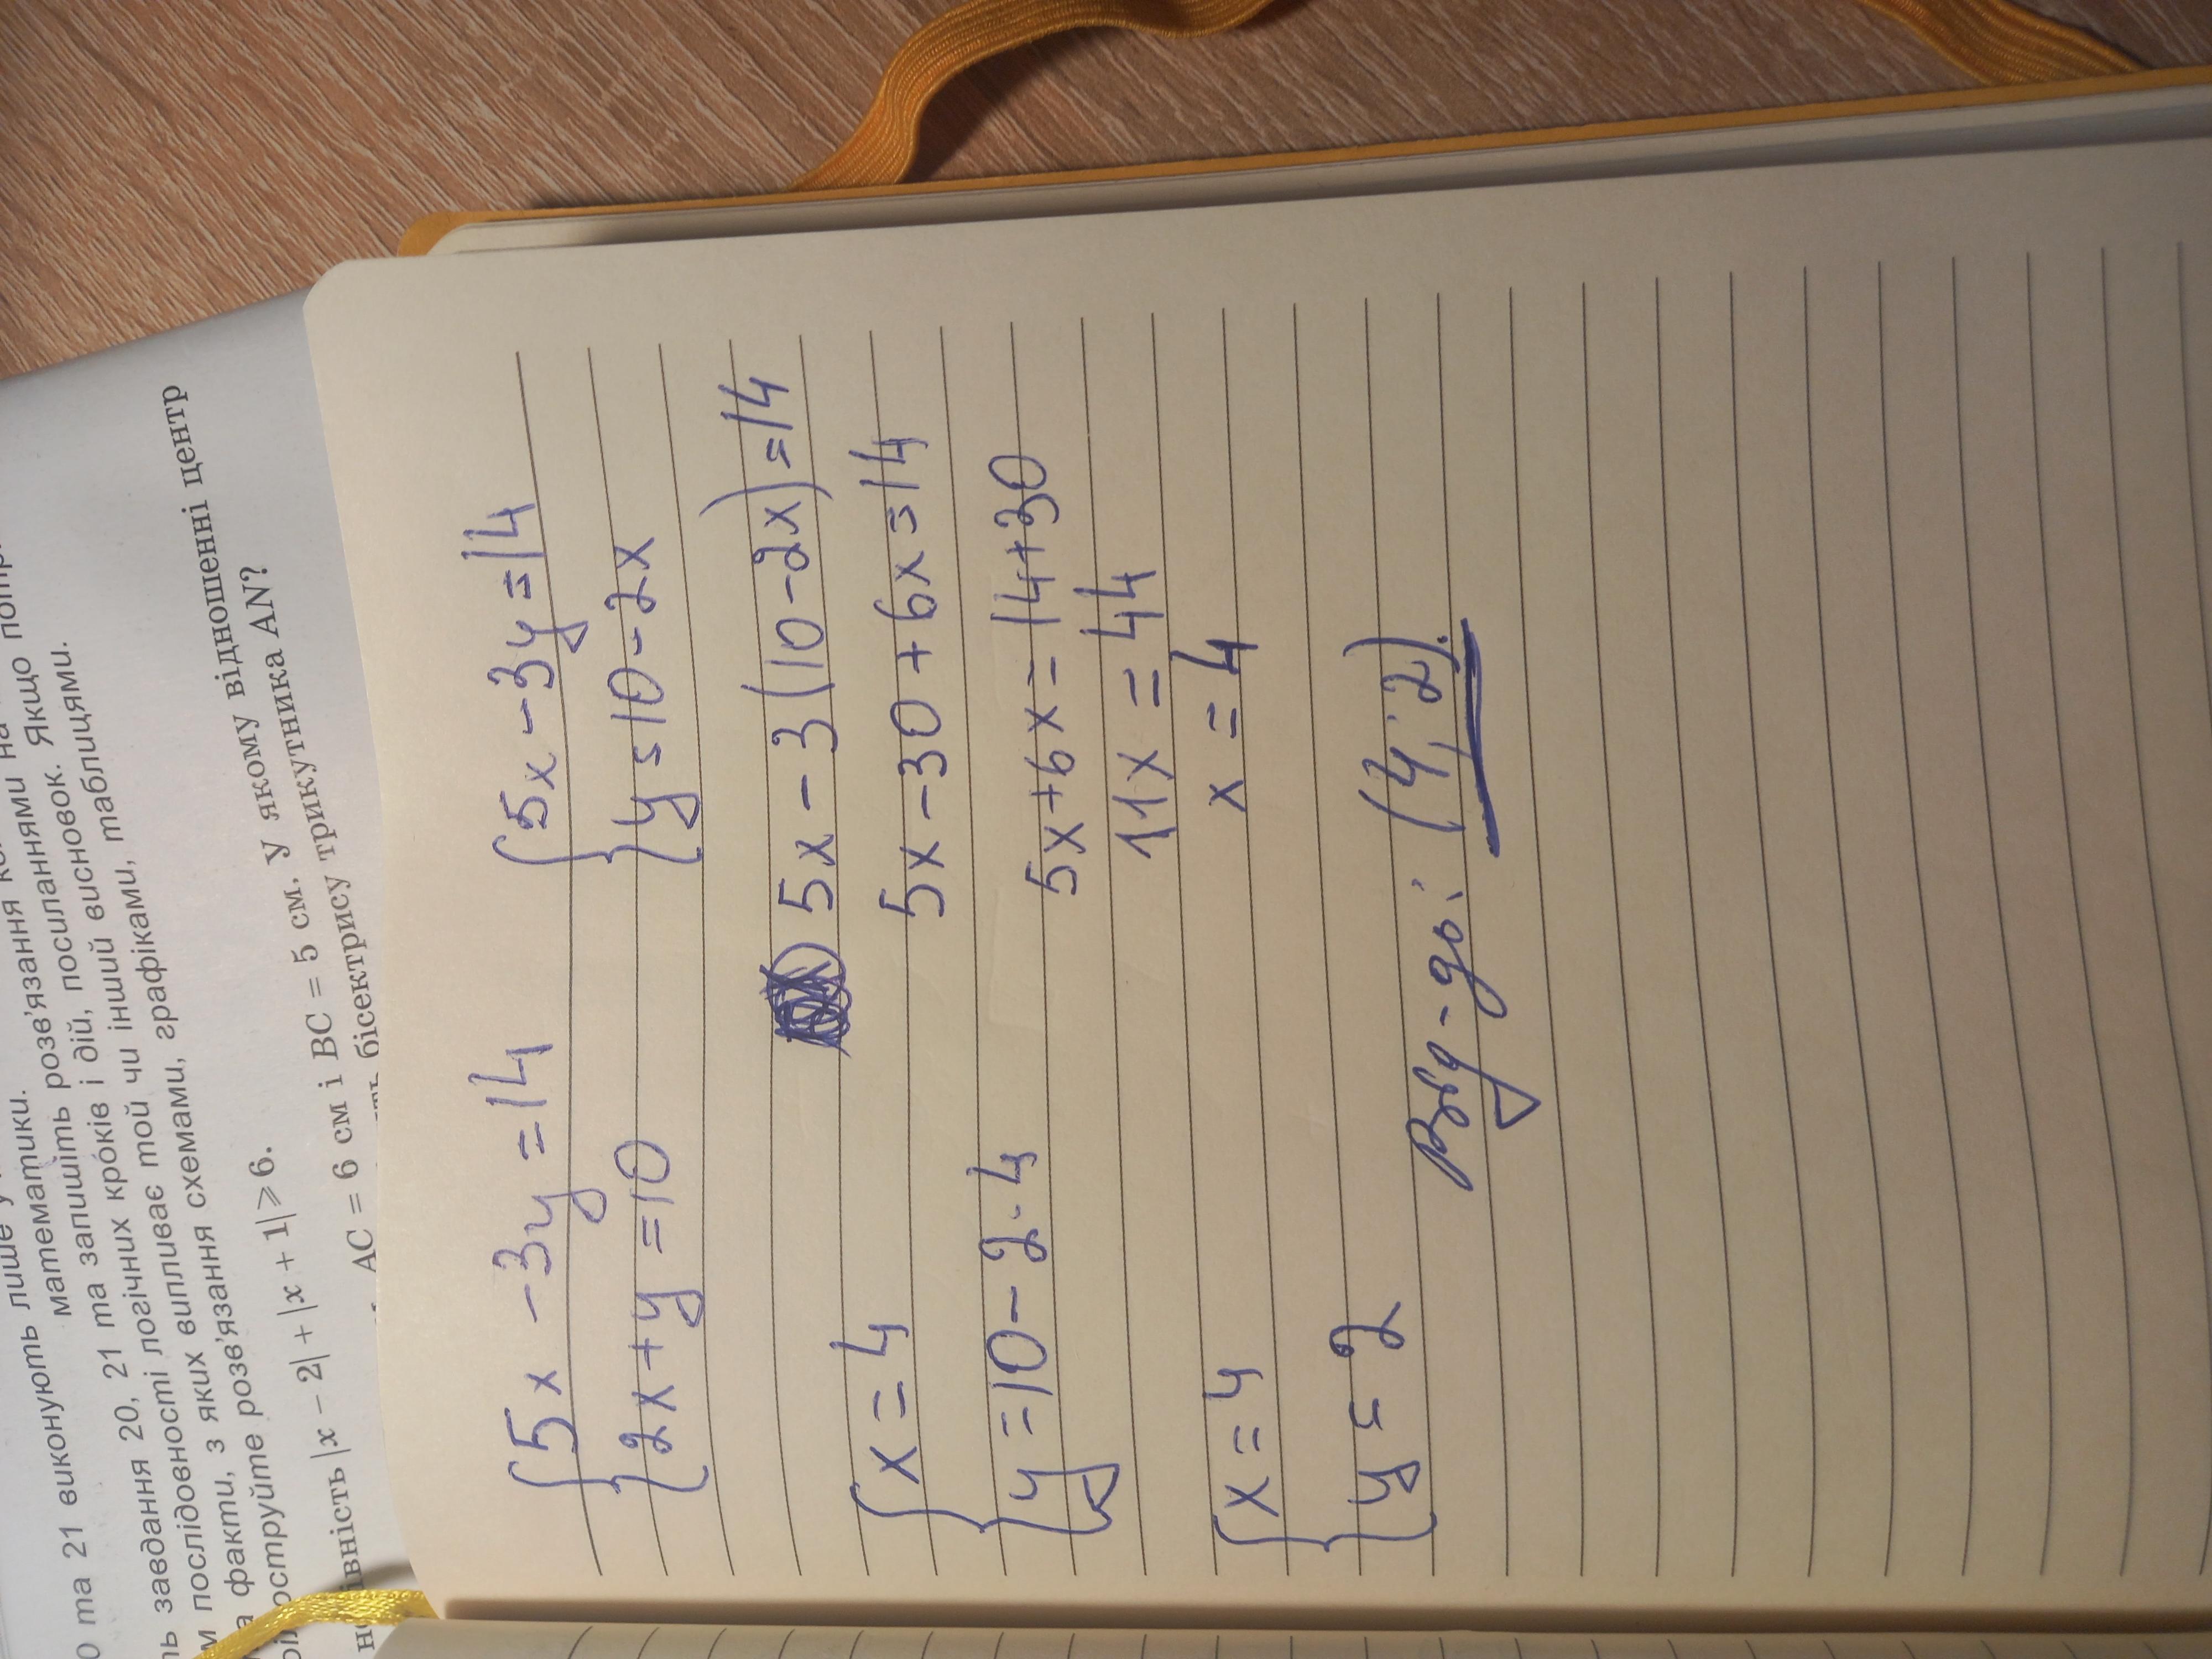 лише у
0 та 21 виконують
математики.
математичні розв'язання
ть завдання 20, 21 та запишіть розв'язання
м послідовності логічних кроків і дій, посиланнями на
а факти, з яких випливає той чи інший висновок. Якщо
оструйте розв'язання схемами, графіками, таблицями.
нерівність |x − 2| + |x + 1| ⩾ 6.
AC = 6 см і BC = 5 см. У якому відношенні центр
бісектрису трикутника AN?
5x - 3y = 14
2x + y = 10
5x - 3y = 14
y = 10 - 2x
5x - 3(10 - 2x) = 14
5x - 30 + 6x = 14
5x + 6x = 14 + 30
11x = 44
x = 4
x = 4
y = 10 - 2·4
x = 4
y = 2
Від-дь: (4; 2).